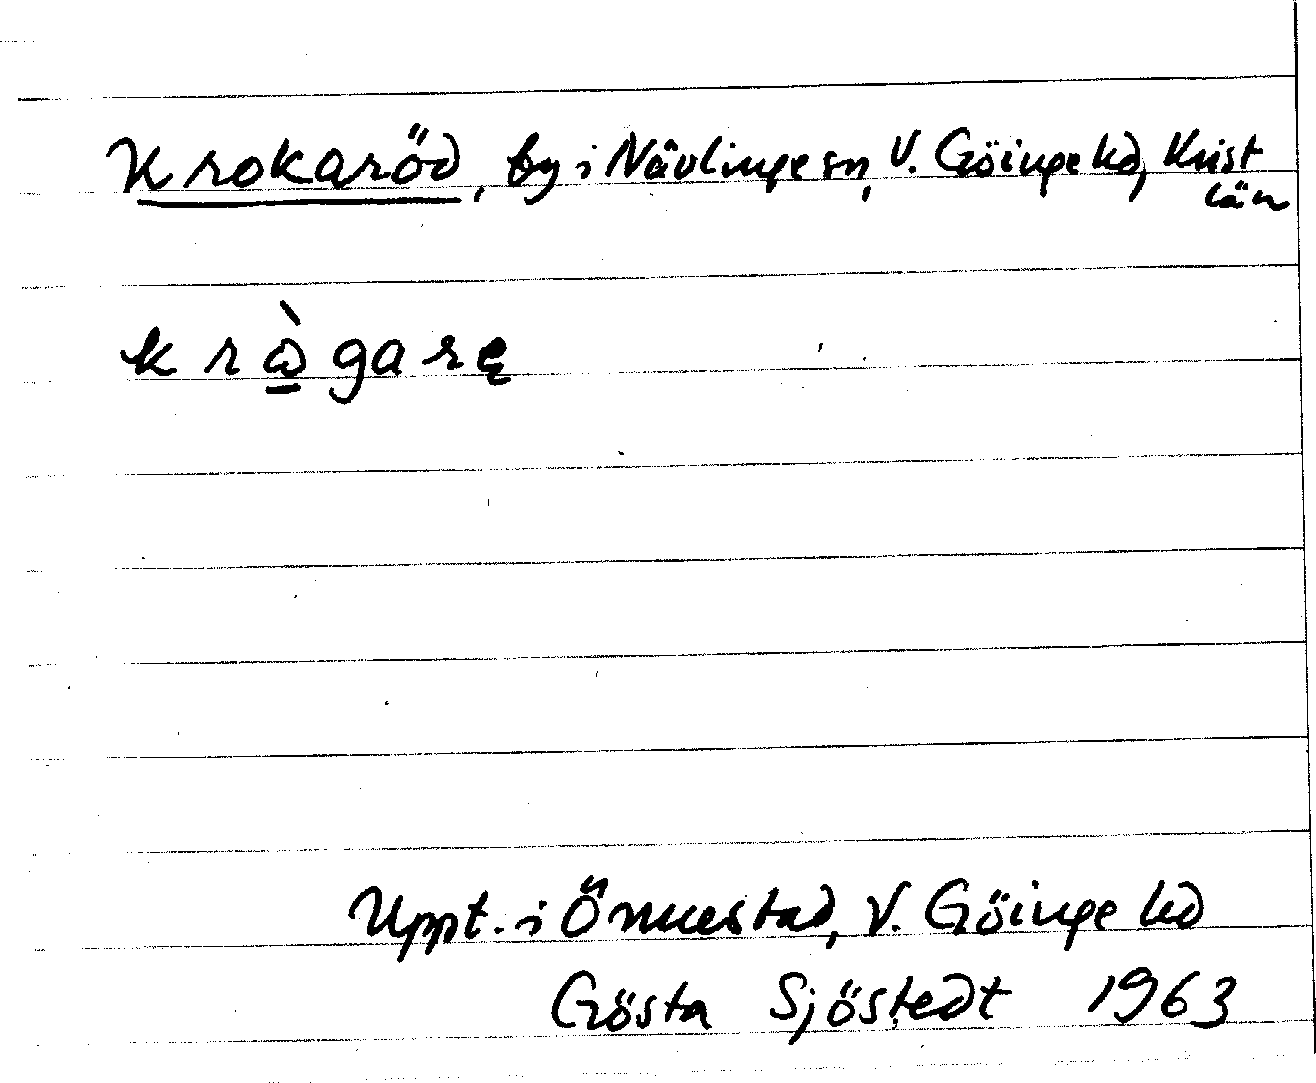 Krokaröd, by i Nävlinge sn, V. Göinge hd, Krist
län
krò̠garę
Uppt. i Önnestad, V. Göinge hd
Gösta Sjöstedt 1963